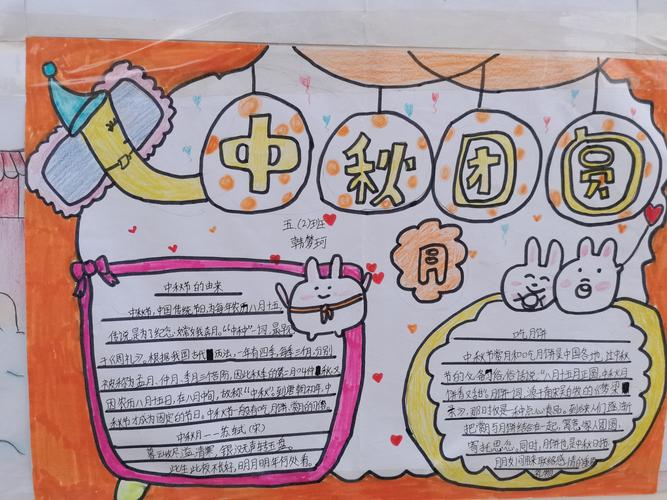 中秋团圆
五(2)班
韩梦珂
月
中秋节的由来
中秋节,中国传统节日,为每年农历八月十五,
传说是为了纪念嫦娥奔月。“中秋”一词,最早
于《周礼》。根据我国古代历法,一年有四季,每季三个月,分别
被称为孟月、仲月、季月三部分,因此秋季的第二月叫仲秋又
因农历八月十五日,在八月中旬,故称“中秋”。到唐朝初年,中
秋节才成为固定的节日。中秋节一般有吃月饼、赏月的习俗。
中秋月——苏轼(宋)
暮云收尽溢清寒,银汉无声转玉盘。
此生此夜不长好,明月明年何处看。
吃月饼
中秋节赏月和吃月饼是中国各地过中秋
节的必备习俗,俗话说:“八月十五月正圆,中秋月
饼香又甜”。月饼一词,源于南宋吴自牧的《梦粱
录》,那时仅是一种点心食品。到后来人们逐渐
把赏月与月饼结合在一起,寓意家人团圆,
寄托思念。同时,月饼也是中秋日
朋友间用来联络感情